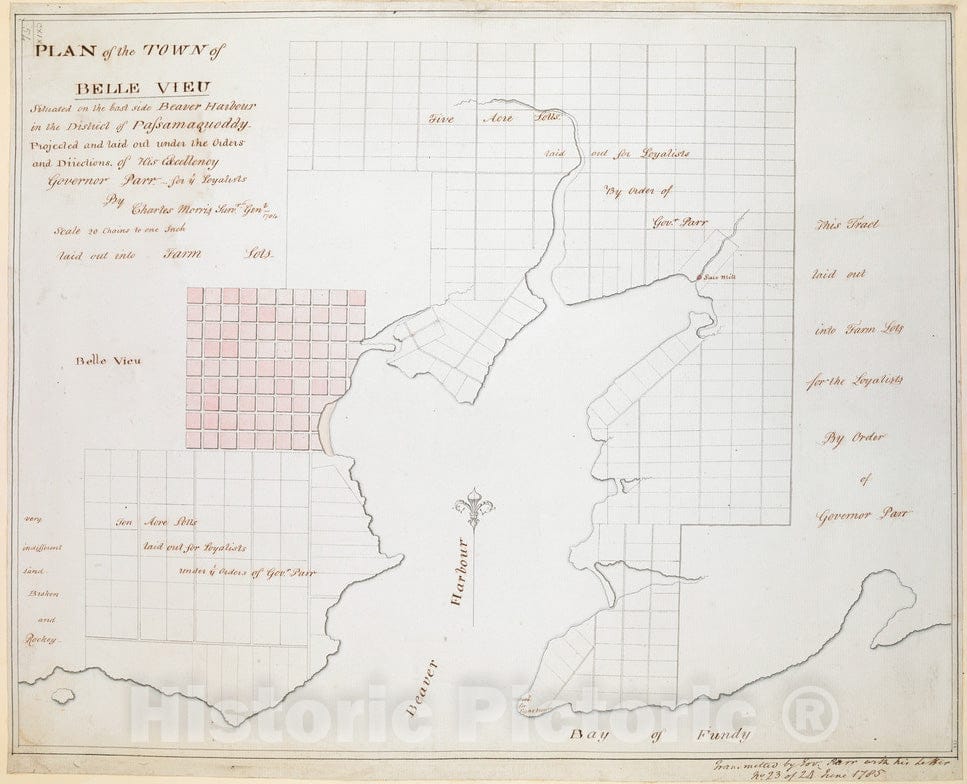 PLAN of the TOWN of
BELLE VIEU
Situated on the East side Beaver Harbour
in the District of Paſsamaquoddy
Projected and laid out under the Orders
and Directions of His Excellency
Governor Parr for ỹ Loyalists
By
Charles Morris Survr. Genl.
1784
Scale 20 Chains to one Inch
laid out into Farm Lots
Five Acre Lotts
laid out for Loyalists
By Order of
Govr. Parr
Saw Mill
This Tract
laid out
into Farm Lots
for the Loyalists
By Order
of
Governor Parr
Belle Vieu
Ten Acre Lotts
laid out for Loyalists
under ỹ Orders of Govr. Parr
very
indifferent
land
Broken
and
Rockey
Beaver Harbour
Bay of Fundy
Transmitted by Govr. Parr with his Letter
No. 23 of 24 June 1785
Historic Pictoric ®